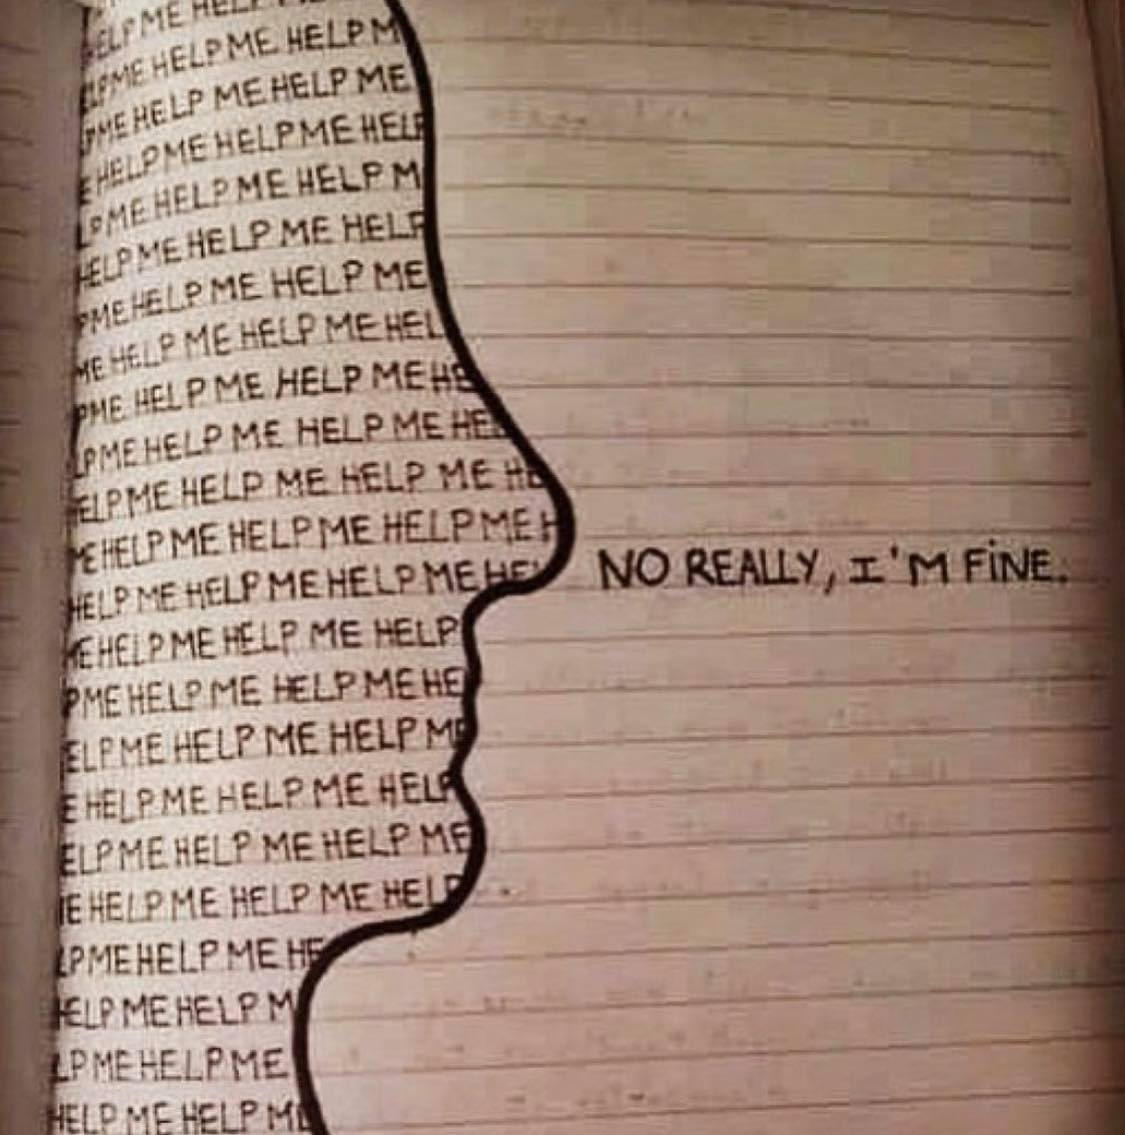 ELP ME HELP ME
ELPME HELP ME HELP M
PME HELP ME HELP ME
E HELP ME HELP ME HELP
LP ME HELP ME HELP M
HELP ME HELP ME HELP
PME HELP ME HELP ME
ME HELP ME HELP ME HEL
PME HELP ME HELP ME HE
LPME HELP ME HELP ME HE
ELPME HELP ME HELP ME HE
ME HELP ME HELP ME HELP ME H
HELP ME HELP ME HELP ME HE
NO REALLY, I'M FiNE.
ME HELP ME HELP ME HELP
PME HELP ME HELP ME HE
ELPME HELP ME HELP ME
E HELP ME HELP ME HELP
ELPME HELP ME HELP ME
E HELP ME HELP ME HELP
LPME HELP ME HE
HELP ME HELP M
LPME HELP ME
HELP ME HELP ME